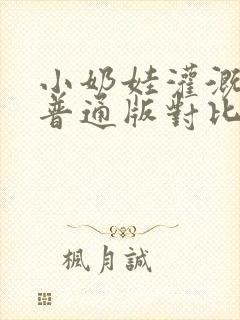 小奶娃灌溉
普通版對比
楓月誠